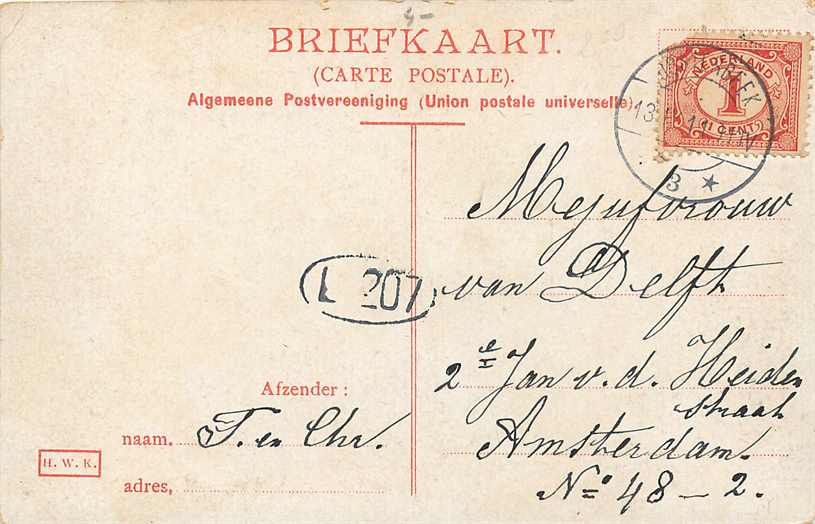 BRIEFKAART.
(CARTE POSTALE).
Algemeene Postvereeniging (Union postale universelle).
NEDERLAND
1
(1 CENT)
3
L 207
Mejufvrouw
van Delft
2e Jan v. d. Heiden
straat
Amsterdam.
No 48 - 2.
Afzender :
naam. T. en Chr.
adres,
H. W. K.